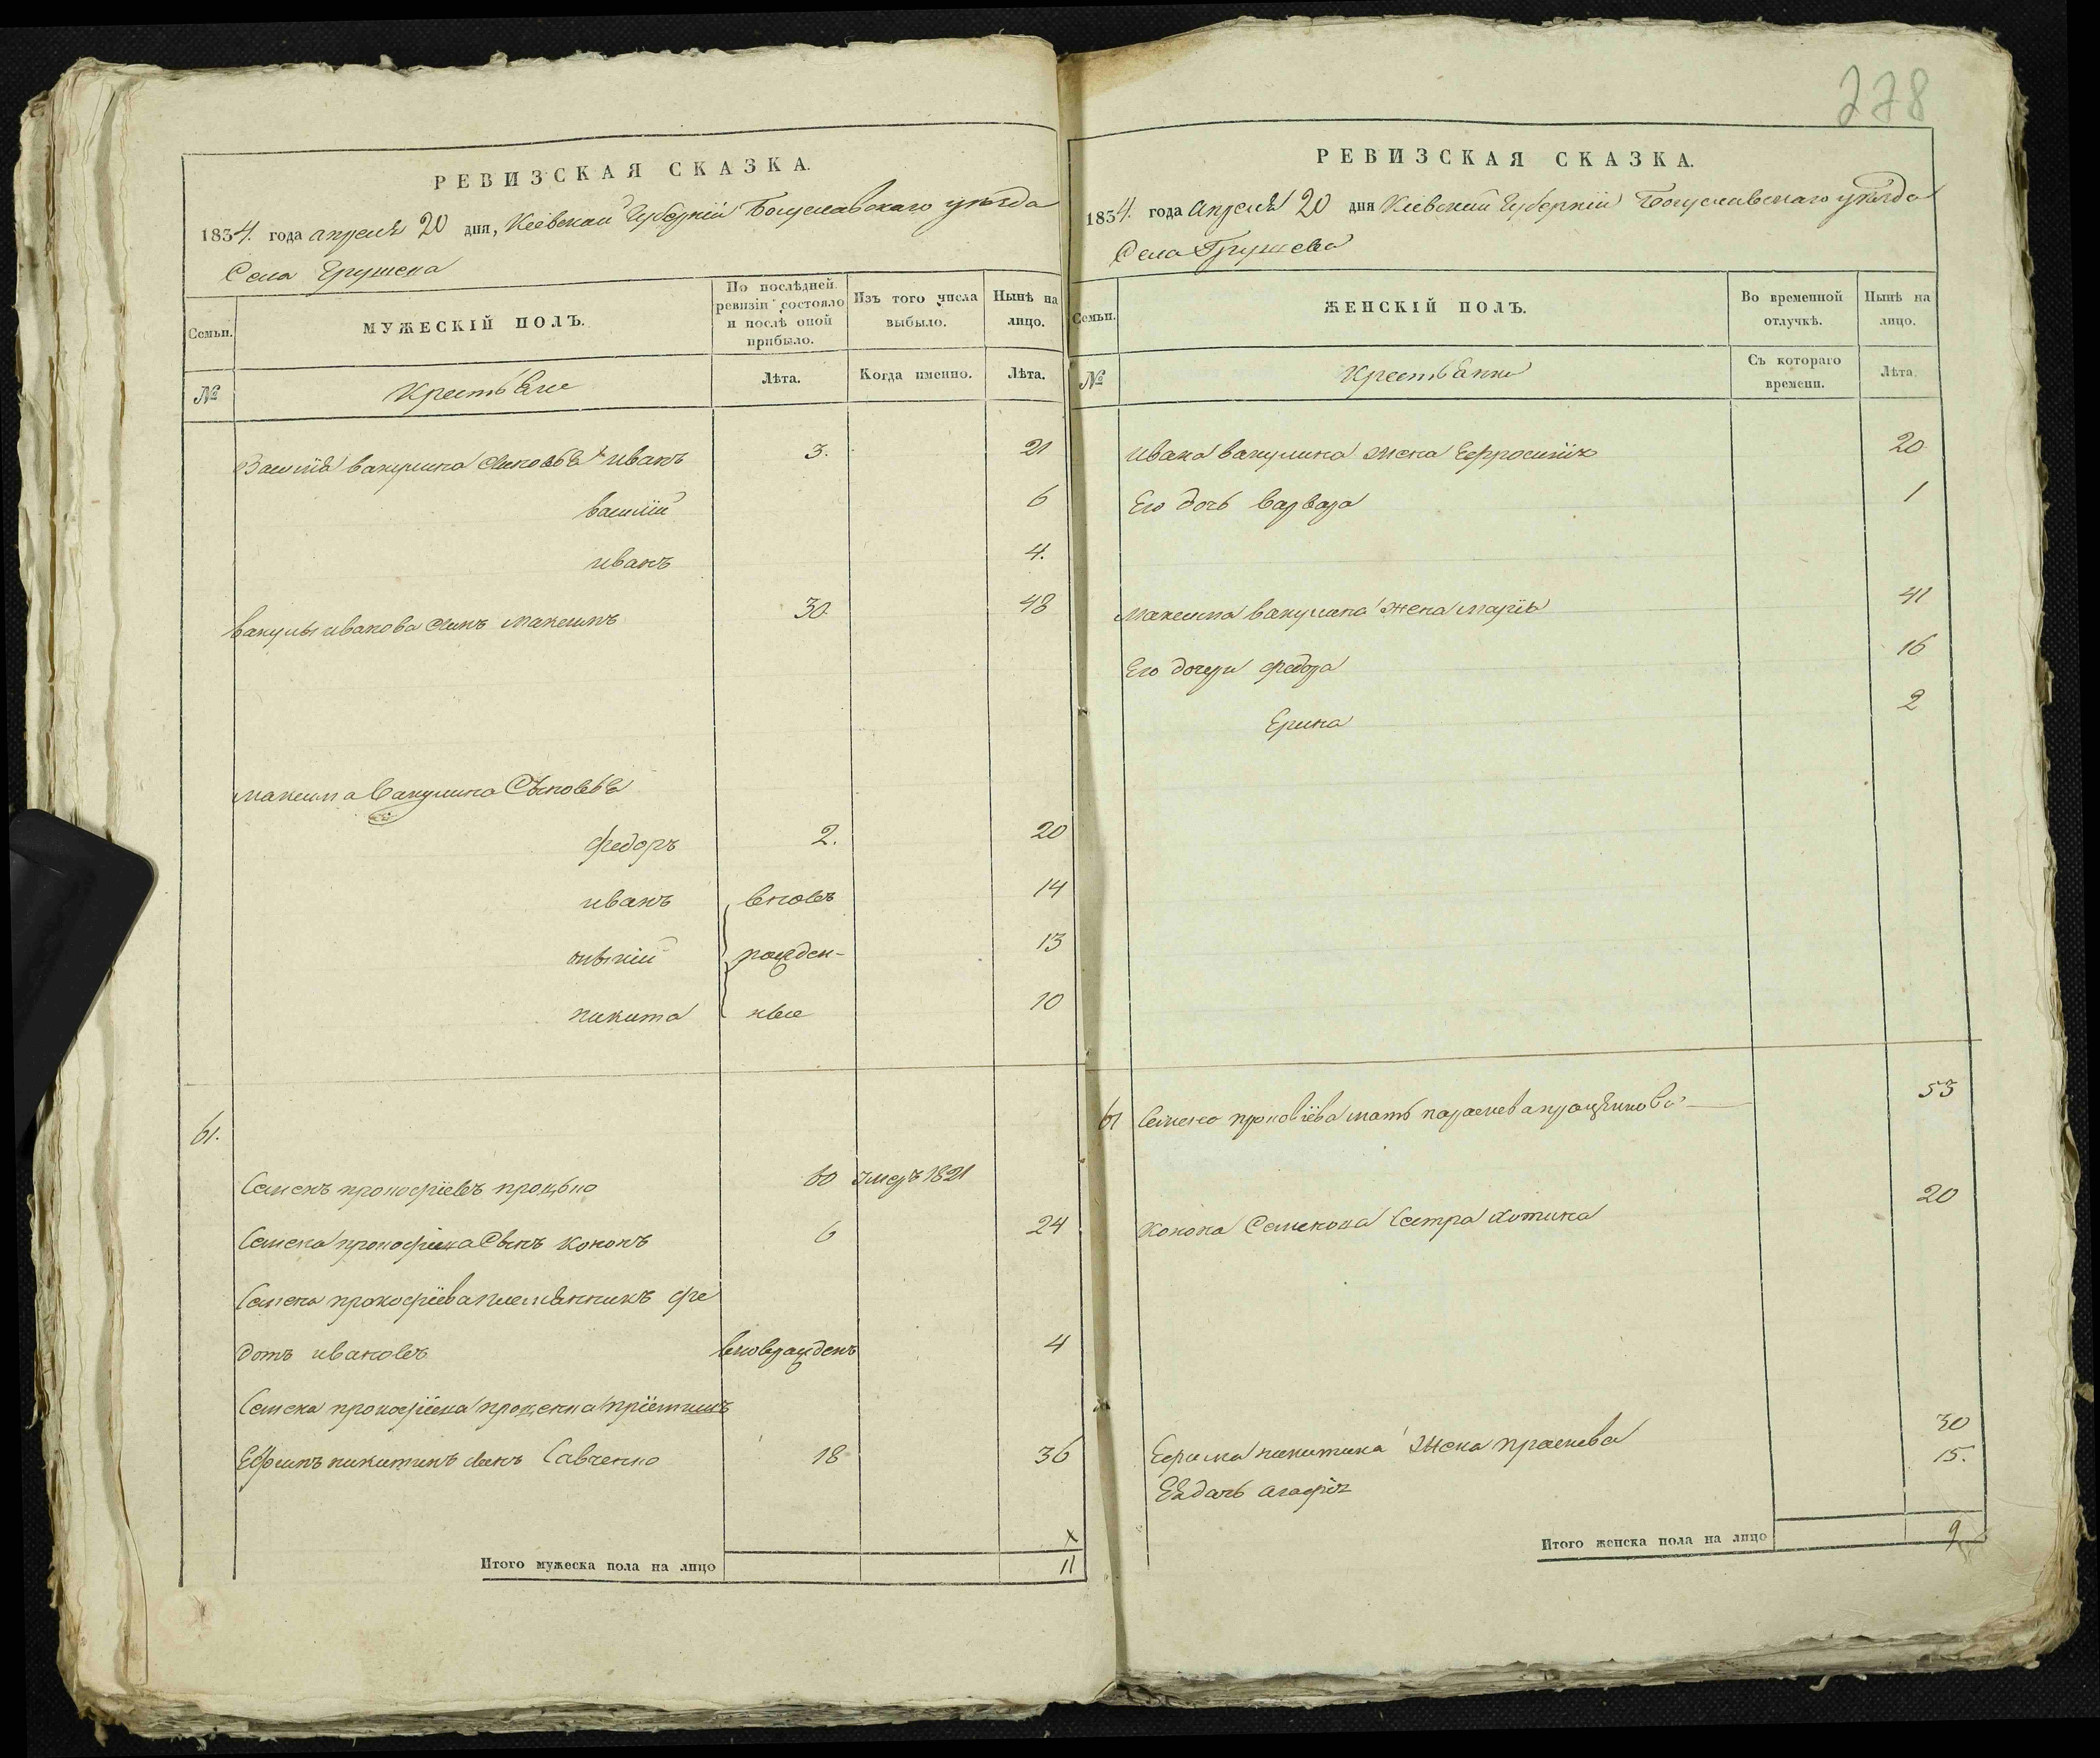 278
РЕВИЗСКАЯ СКАЗКА.
1834. года апреля 20 дня, Кіевской Губерніи Богуславскаго уѣзда
Села Грушева
Семьи.
МУЖЕСКІЙ ПОЛЪ.
По послѣдней ревизіи состояло и послѣ оной прибыло.
Изъ того числа выбыло.
Нынѣ на лицо.
№
Крестьяне
Лѣта.
Когда именно.
Лѣта.
Василія вакулина сыновья иванъ 3. 21
василій 6
иванъ 4.
вакулы иванова сынъ максимъ 30 48
максима Вакулина Сыновья
федоръ 2. 20
иванъ вновь 14
рожден- 13
никита ные 10
61.
Семенъ прокофіевъ проценко 60 умеръ 1821
Семена прокофіева Сынъ кононъ 6 24
Семена прокофіева племянникъ фе
дотъ ивановъ вноврожденъ 4
Семена прокофіева проценка пріемишъ
Ефимъ никитинъ сынъ Савченко 18 36
х
Итого мужеска пола на лицо 11
РЕВИЗСКАЯ СКАЗКА.
1834. года Апреля 20 дня Кіевской Губерніи Богуславскаго уѣзда
Села Грушева
Семьи.
ЖЕНСКІЙ ПОЛЪ.
Во временной отлучкѣ.
Нынѣ на лицо.
№
Крестьянки
Съ котораго времени.
Лѣта.
ивана вакулина жена Ефросинія 20
Его дочь варвара 1
максима вакулина жена марія 41
Его дочери федора 16
Ерина 2
61 Семена прокофіева мать параскева 53
Конона Семенова Сестра хотина 20
Ефима никитина жена праскева 30
Ея дочь агафія 15.
Итого женска пола на лицо 9